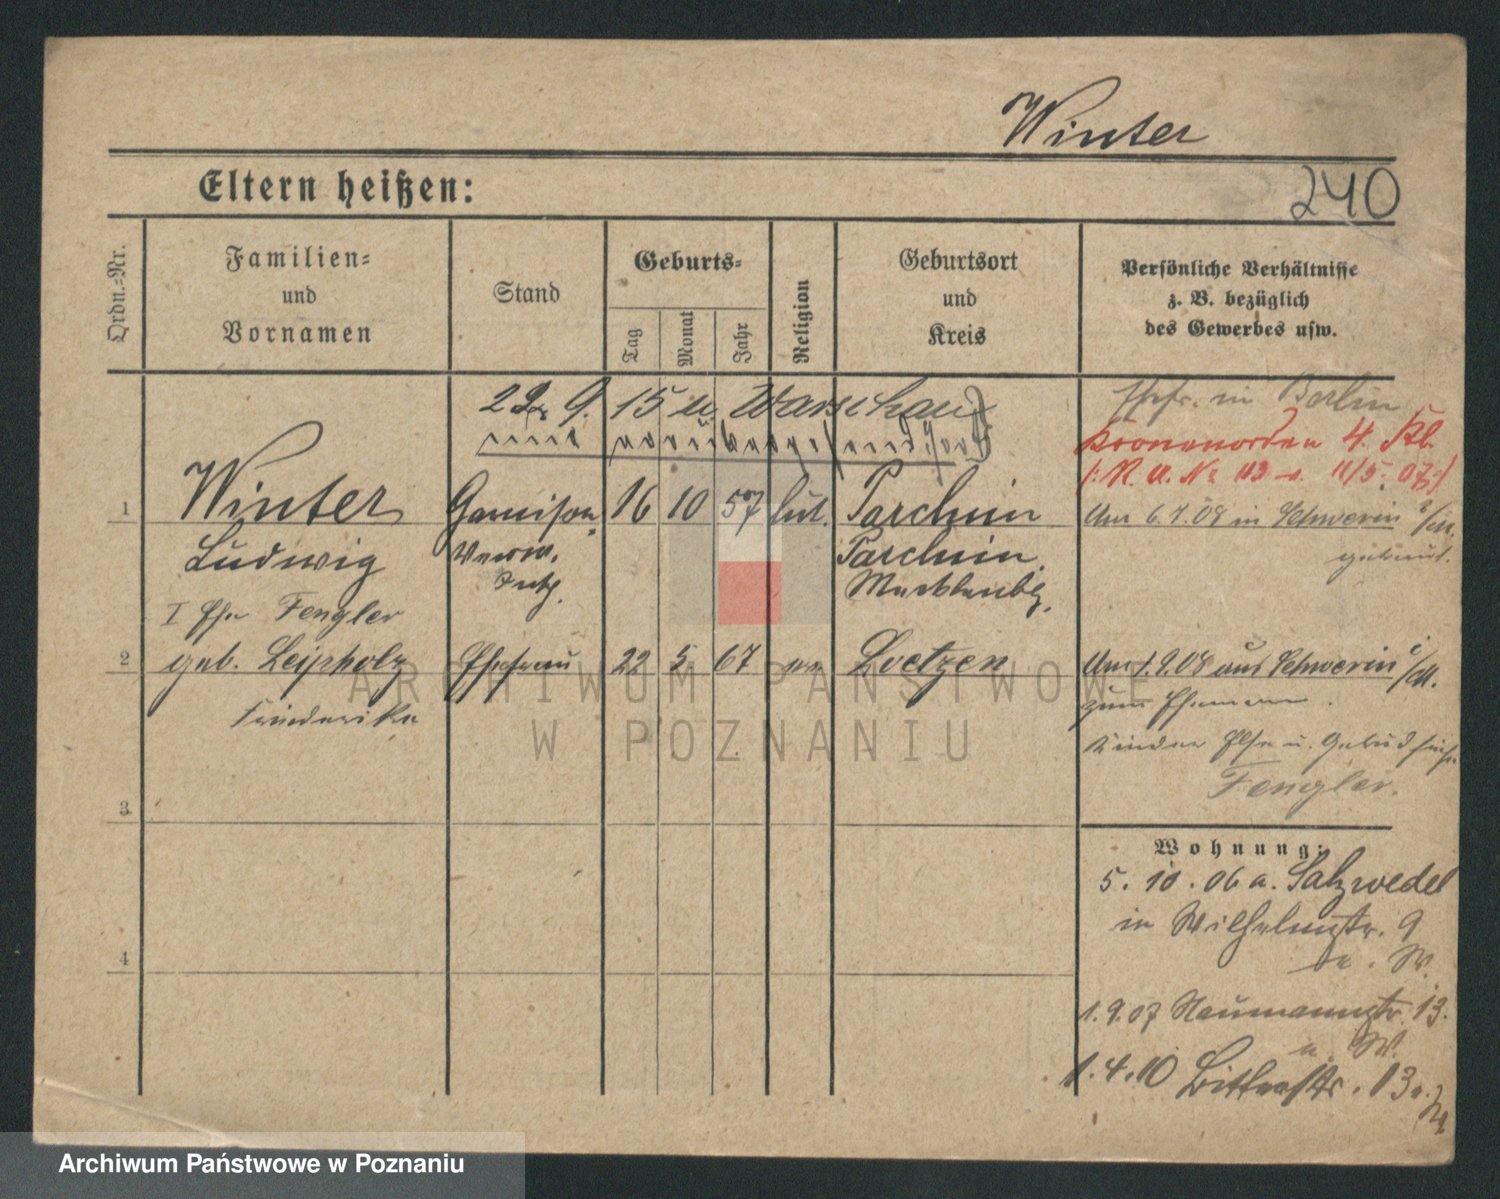 Winter
Eltern heißen:
240
Ordn.-Nr.
Familien-
und
Vornamen
Stand
Geburts-
Tag
Monat
Jahr
Religion
Geburtsort
und
Kreis
Persönliche Verhältnisse
z. B. bezüglich
des Gewerbes usw.
22. 9. 15 n. Warschau
Ehefr. in Berlin
Kronenorden 4. Kl.
1
Winter
Ludwig
Garnison
Verw.
16 10 57 lut.
Parchim
Parchim
Mecklenbg.
Am 6.7.08 in Schwerin i/M.
getraut.
2
I Ehe Fengler
geb. Leipholz
Friederike
Ehefrau
22 5. 67
Loetzen
Am 1.9.08 aus Schwerin i/M.
zum Ehemann.
Kinder Else u. Gertrud
Fengler.
3
4
Wohnung:
5. 10. 06 a. Salzwedel
in Wilhelmstr. 9
b. W.
1.9.07 Naumannstr. 13.
W.
1.4.10 Bitterstr. 13
ARCHIWUM PAŃSTWOWE
W POZNANIU
Archiwum Państwowe w Poznaniu